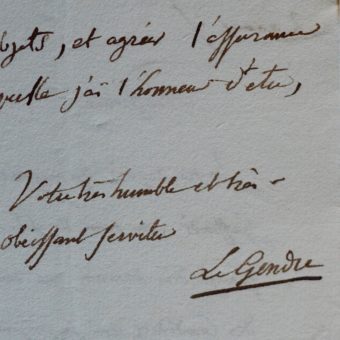 bjets, et agréer l'assurance
quelle j'ai l'honneur d'etre,
Votre très humble et très-
obeissant serviteur
Le Gendre